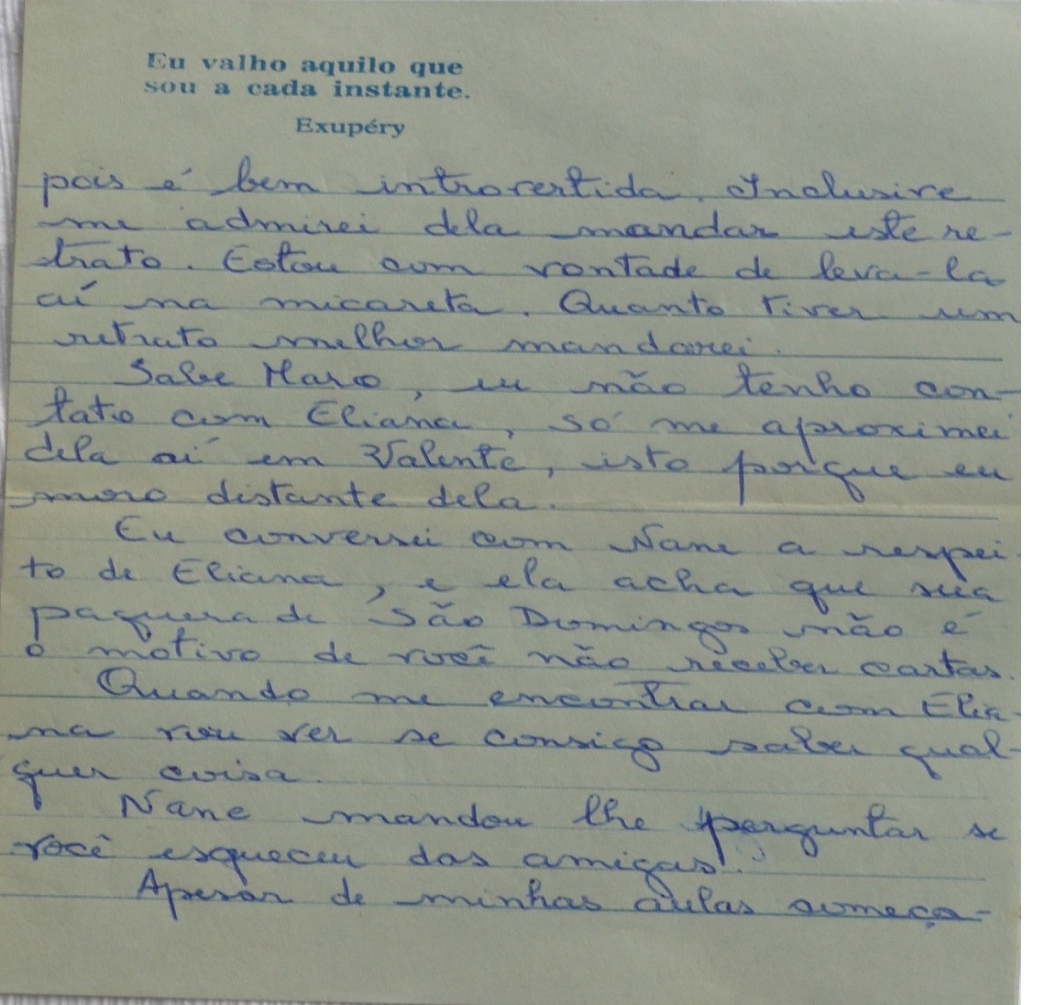 Eu valho aquilo que
sou a cada instante.
Exupéry
pois é bem introvertida. Inclusive
me admirei dela mandar este re-
trato. Estou com vontade de leva-la
aí na micareta. Quanto tiver um
retrato melhor mandarei.
Sabe Maro, eu não tenho con-
tato com Eliana, só me aproximei
dela aí em Valente, isto porque eu
moro distante dela.
Eu conversei com Nane a respei
to de Eliana, e ela acha que sua
paquera de São Domingos não é
o motivo de você não receber cartas.
Quando me encontrar com Elia-
na vou ver se consigo saber qual-
quer coisa.
Nane mandou lhe perguntar se
você esqueceu das amigas!?
Apesar de minhas aulas começa-